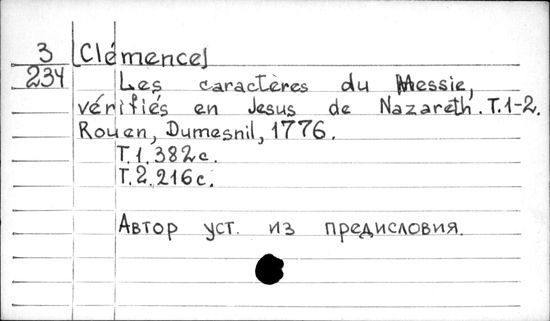 3
234
Clémence]
Les caractères du Messie,
vérifiés en Jesus de Nazareth. T.1-2.
Rouen, Dumesnil, 1776.
T.1. 382c.
T.2. 216c.
Автор уст. из предисловия.